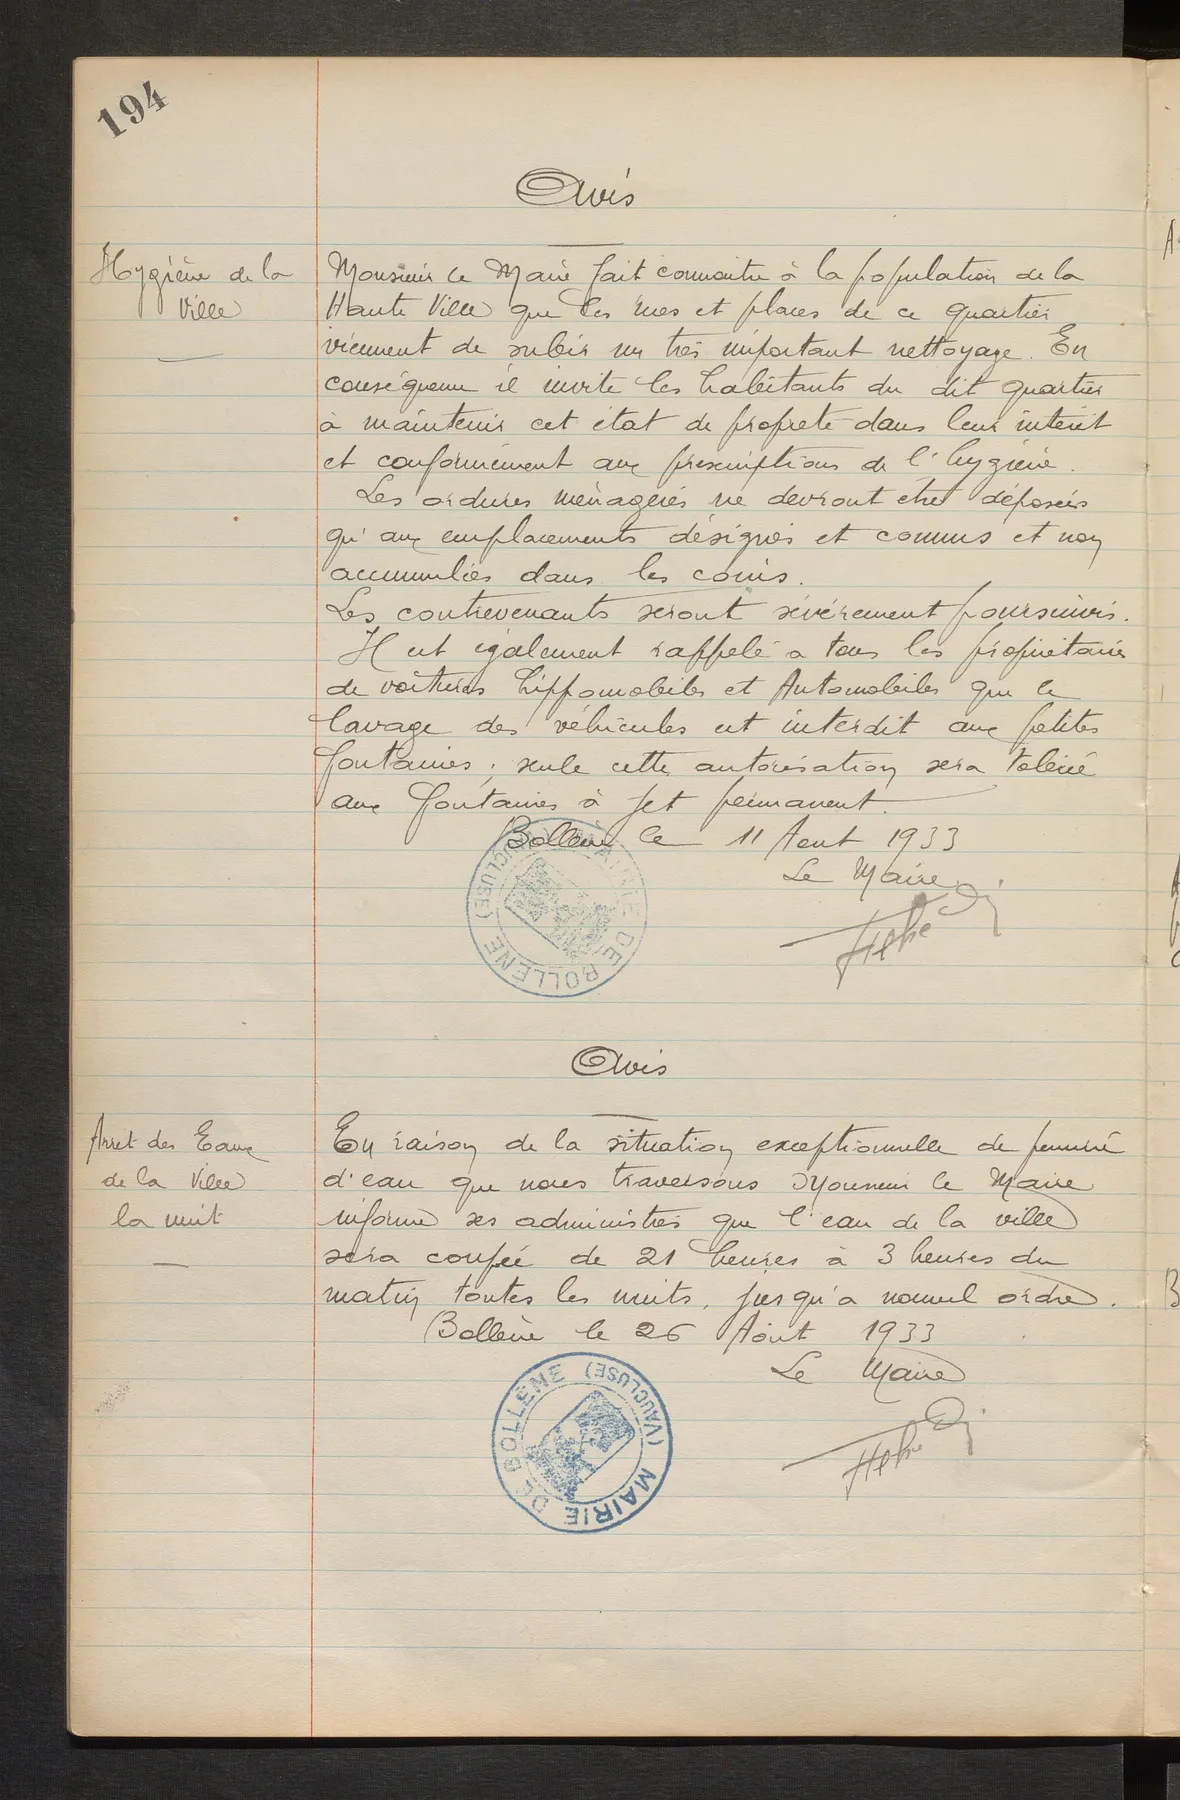 194
Avis
Hygiène de la
Ville
Monsieur le Maire fait connaitre à la population de la
Haute Ville que les rues et places de ce quartier
viennent de subir un très important nettoyage. En
conséquence il invite les habitants du dit quartier
à maintenir cet état de propreté dans leur intérêt
et conformément aux prescriptions de l'hygiène.
Les ordures ménagères ne devront être déposées
qu'aux emplacements désignés et connus et non
accumulées dans les coins.
Les contrevenants seront sévèrement poursuivis.
Il est également rappelé a tous les propriétaires
de voitures hippomobiles et Automobiles que le
lavage des véhicules est interdit aux petites
fontaines ; seule cette autorisation sera tolérée
aux fontaines à jet permanent.
Bollène le 11 Aout 1933
Le Maire
MAIRIE DE BOLLÈNE (VAUCLUSE)
Avis
Arret des Eaux
de la Ville
la nuit
En raison de la situation exceptionnelle de penurie
d'eau que nous traversons Monsieur le Maire
informe ses administrés que l'eau de la ville
sera coupée de 21 heures à 3 heures du
matin toutes les nuits, jusqu'a nouvel ordre.
Bollène le 26 Août 1933
Le Maire
MAIRIE DE BOLLÈNE (VAUCLUSE)